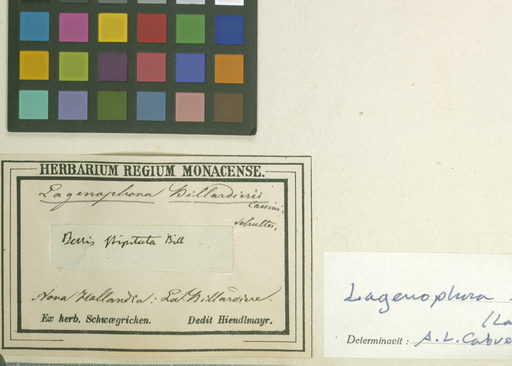 HERBARIUM REGIUM MONACENSE.
Lagenophora Billardieri
Cassini.
Schultes.
Berris stipitata Bill
Nova Hollandia: La Billardiere.
Ex herb. Schwægrichen. Dedit Hiendlmayr.
Lagenophora
(La
Determinavit: A. L. Cabre